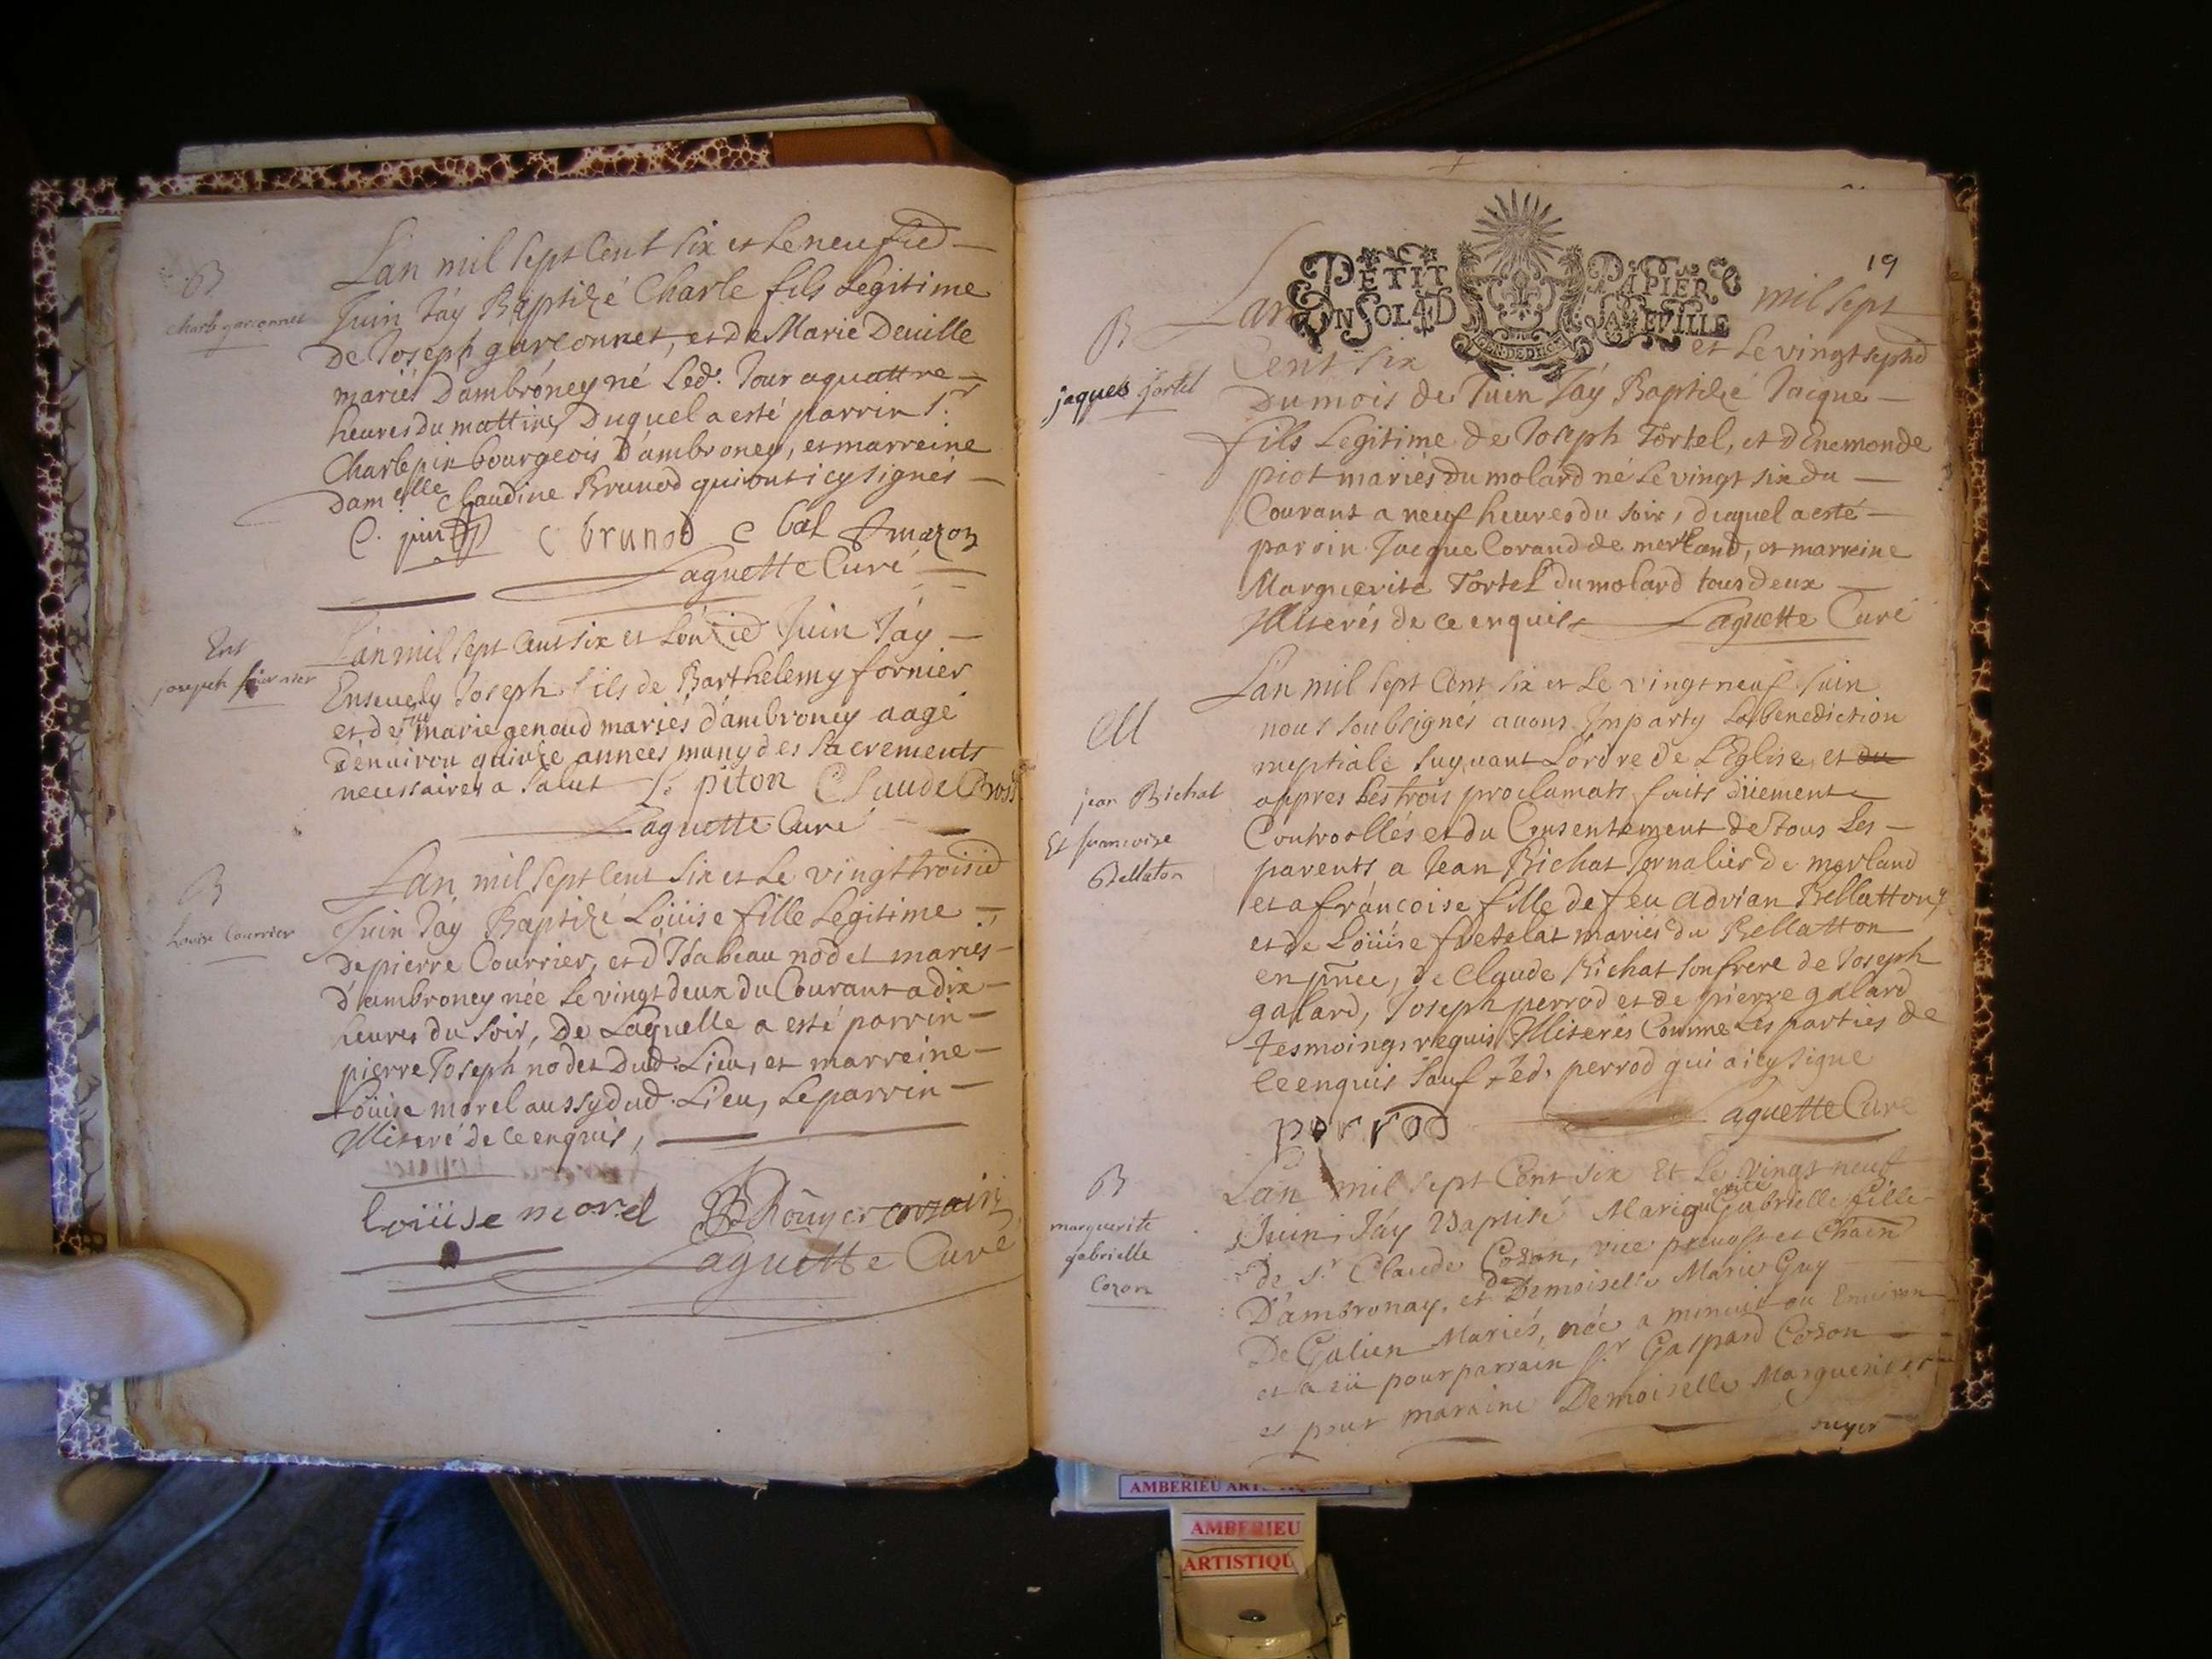 B
Charle garconnet
Lan mil sept Cent six et le neufied
Juin Jáy Baptizé Charle fils Legitime
De Joseph garconnet, et de Marie Deuille
mariés Dambróney né Led. Jour a quattre
heures du mattin, Duquel a esté parrin S.r
Charle pin bourgeois D'ambroney, et marreine
Dam.elle Claudine Brunod qui ont icy signes
C. pin C brunod C bal
Laguette Curé
Ent
joseph fournier
Lan mil sept Cent six et Lonzied Juin Jáy
Enseuely Joseph fils de Barthelemy fornier
et de marie genoud mariés d'ambroney aagé
d'enuiron quinze années muny des sacrements
necessaires a salut piton Claude Bross
Laguette Curé
B
Louise Courrier
Lan mil sept Cent six et Le vingt troisied
Juin Jáy Baptizé Loüise fille Legitime
De pierre Courrier, et d'Isabeau nodet mariés
d'ambroney née Le vingt deux du Courant a dix
heures du soir, De Laquelle a esté parrin
pierre Joseph nodet Dud. Lieu, et marreine
Loüise morel aussy dud. Lieu, Le parrin
Illiteré de ce enquis,
loüise morel
Laguette Curé
19
PETIT PAPIER
UN SOL 4 D LA FEUILLE
B
jaques tortel
Lan mil sept
Cent six et Le vingt septied
Du mois de Juin Jáy Baptizé Jacque
fils Legitime de Joseph Tortel, et d'Enemonde
piot mariés du molard né Le vingt six du
Courant a neuf heures du soir, duquel a esté
paroin Jacque Corand de merland, et marreine
Marguerite Tortel du molard tous deux
Illiterés de ce enquis Laguette Curé
M
jean Bichat
Et francoise
Bellaton
Lan mil sept Cent six et Le vingt neuf Juin
nous soubsignés auons Imparty La benediction
nuptiale suyuant Lordre de L'Eglise, et du
appres Les trois proclamats faits düement
Controollés et du Consentement de tous Les
parents a Jean Bichat Jornalier de merland
et a fráncoise fille de feu Adrian Bellatton
et de Loüise fretelat mariés du Bellatton
en pñce, de Claude Bichat son frere de Joseph
galard, Joseph perrod et de pierre galard
tesmoings requis Illiterés Comme Les parties de
ce enquis sauf Led. perrod qui a icy signe
perrod Laguette Curé
B
marguerite
gabrielle
Cozon
Lan mil sept Cent six Et Le Vingt neuf
Juin Jáy Baptisé Marguerite Gabrielle fille
de S.r Claude Cozon, vice preuost et Chaën
D'ambronay, et de Demoiselle Marie Guy
De Galien Mariés, née a minuit ou Enuiron
et a eü pour parrain S.r Gaspard Cozon
et pour maraine Demoiselle Marguerite
ruyer
AMBERIEU
AMBERIEU
ARTISTIQU